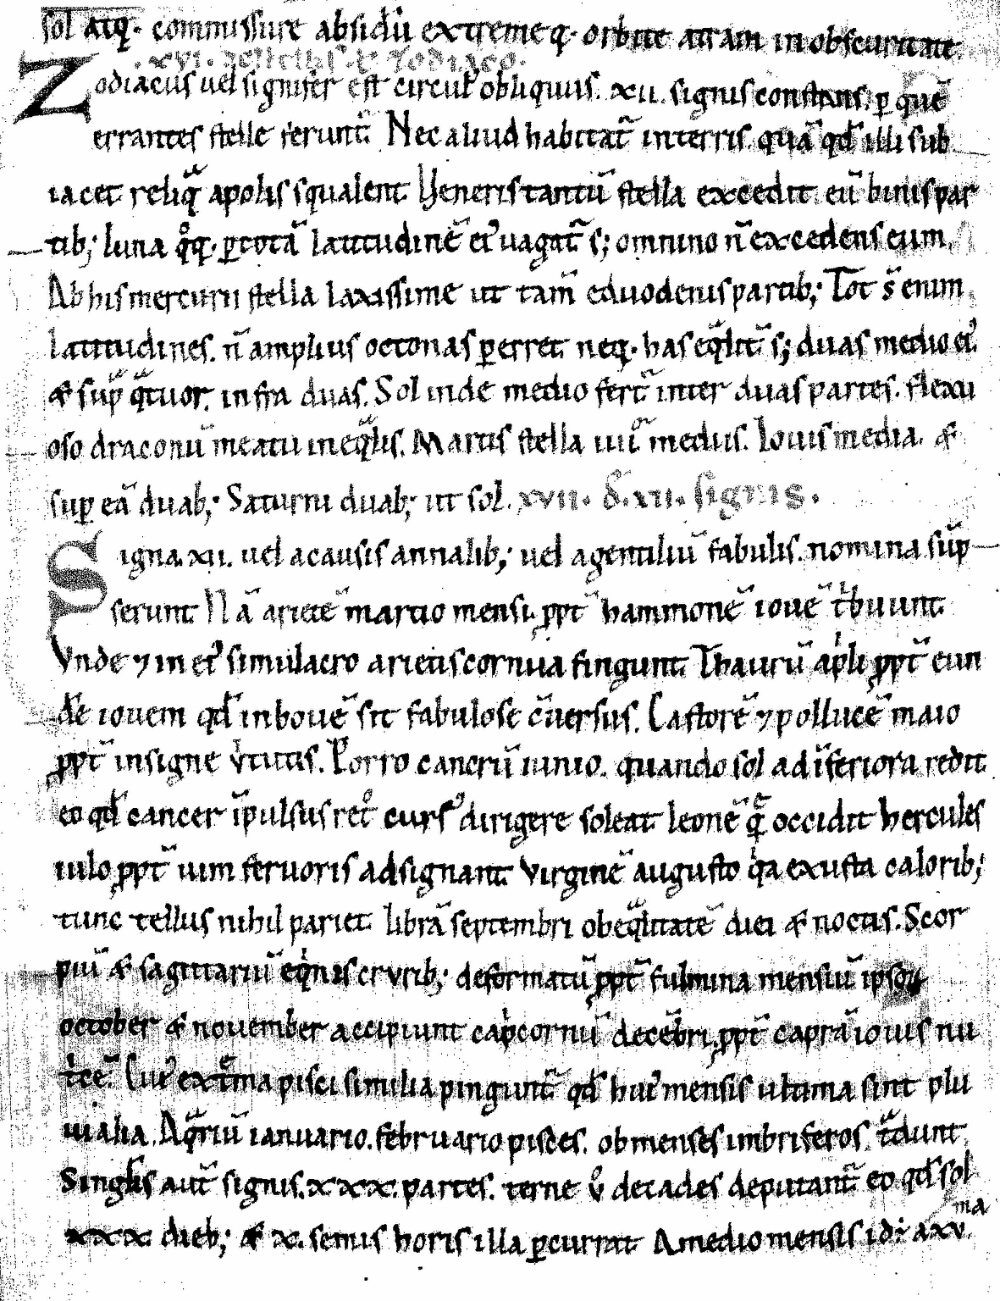 sol atq. commissure absidū extremeq. orbite aeram in obscuritate
.xvi. de stellis & zodiaco.
Zodiacus uel signifer est circul' obliquus. xii. signis constans. p̱ quē
errantes stelle ferunt̄. Nec aliud habitat̄ in terris. quā qđ illi sub
iacet reliq̄ a polis squalent Ueneris tantū stella excedit eū binis par
tib; luna q̊q. p̱ totā latitudinē ei' uagat̄ s; omnino n̄ excedens eum.
Ab his mercurii stella laxissime ut tam̄ e duodenis partib; Tot s̄ enim
latitudines. n̄ amplius octonas p̱erret neq. has eq̄lit̄ s; duas medio ei'.
& sup̄ q̄tuor. infra duas. Sol inde medio fert̄ inter duas partes. flexu
oso draconū meatu ineq̄lis. Martis stella iiii medius. Iouis media. &
sup̱ eā duab; Saturni duab; ut sol. xvii. đ. xii. signis.
Signa. xii. uel a causis annalib; uel agentiliū fabulis. nomina sūp
serunt Nā arietē martio mensi. ꝓpt̄ hammonē iouē t̍buunt
Vnde ⁊ in ei' simulacro arietis cornua fingunt. Thaurū ap̍li ꝓpt̄ eun
dē iouem qđ in bouē sit fabulose c̄uersus. Castorē ⁊ pollucē maio
ꝓpt̄ insigne v̍tutis. Porro cancrū iunio. quando sol ad īferiora redit
eo qđ cancer īpulsus ret̊ curs' dirigere soleat leonē q̄ occidit hercules
iulo ꝓpt̄ uim feruoris adsignant Virginē augusto q̍a exusta calorib;
tunc tellus nihil pariet librā septembri ob eq̄litatē diei & noctis. Scor
piū & sagittariū eq̍nis crurib; deformatū ꝓpt̄ fulmina mensiū ipsoꝝ
october & nouember accipiunt cap̍cornū decēbri ꝓpt̄ caprā iouis nu
t̍cē. Cui' ext̄ma pisci similia pingunt̄ qđ hui' mensis ultima sint plu
uialia. Aq̄riū ianuario. februario pisces. ob menses imbriferos. t̄dunt
Singlis aut̄ signis. xxx. partes. terne v̊ decades deputant̄ eo qđ sol
xxx dieb; & x. semis horis illa p̱currat A medio mensis id÷ a xv.ma